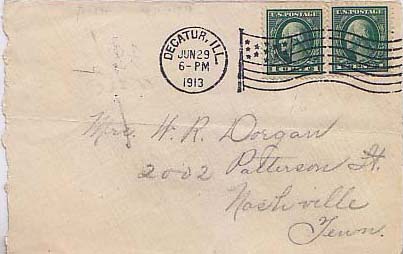 DECATUR, ILL.
JUN 29
6-PM
1913
U.S. POSTAGE
U.S. POSTAGE
Mrs. W. R. Dorgan
2002 Patterson St.
Nashville
Tenn.